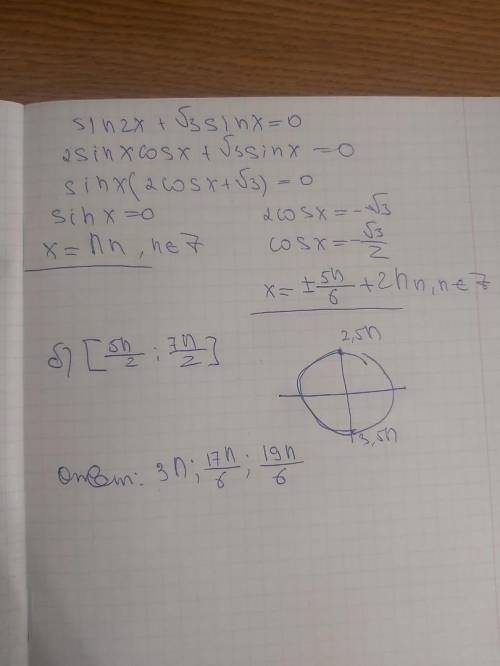 sin2x + √3 sinx = 0
2sinxcosx + √3 sinx = 0
sinx(2cosx + √3) = 0
sinx = 0
x = πn, n ∈ Z
2cosx = -√3
cosx = -√3/2
x = ± 5π/6 + 2πn, n ∈ Z
б) [5π/2 ; 7π/2]
2,5π
3,5π
Ответ: 3π; 17π/6; 19π/6